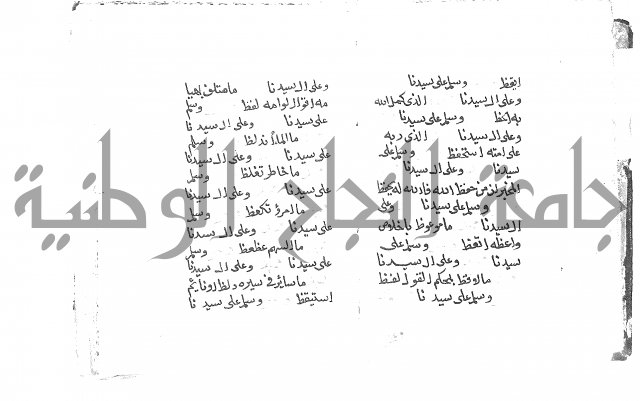 ايقظ وسلم على سيدنا
وعلى ال سيدنا الذي كمل الله
به لحظ وسلم على سيدنا
وعلى ال سيدنا الذي ربه
على امته استحفظ وسلم على
سيدنا وعلى ال سيدنا
من حفظ الله
وسلم على سيدنا وعلى
ال سيدنا ما موعوظ باخلاص
واعظه اتعظ وسلم على
سيدنا وعلى ال سيدنا
القول لفظ
وسلم على سيدنا
وعلى ال سيدنا
لفظ وسلم
على سيدنا وعلى ال سيدنا
وسلم
على سيدنا وعلى ال سيدنا
ما خاطر تغلظ وسلم
على سيدنا وعلى ال سيدنا
ما امرؤ وسلم
على سيدنا وعلى ال سيدنا
ما السهم وسلم
على سيدنا وعلى ال سيدنا
ما ساير في سيره
استيقظ وسلم على سيدنا
جامعة النجاح الوطنية